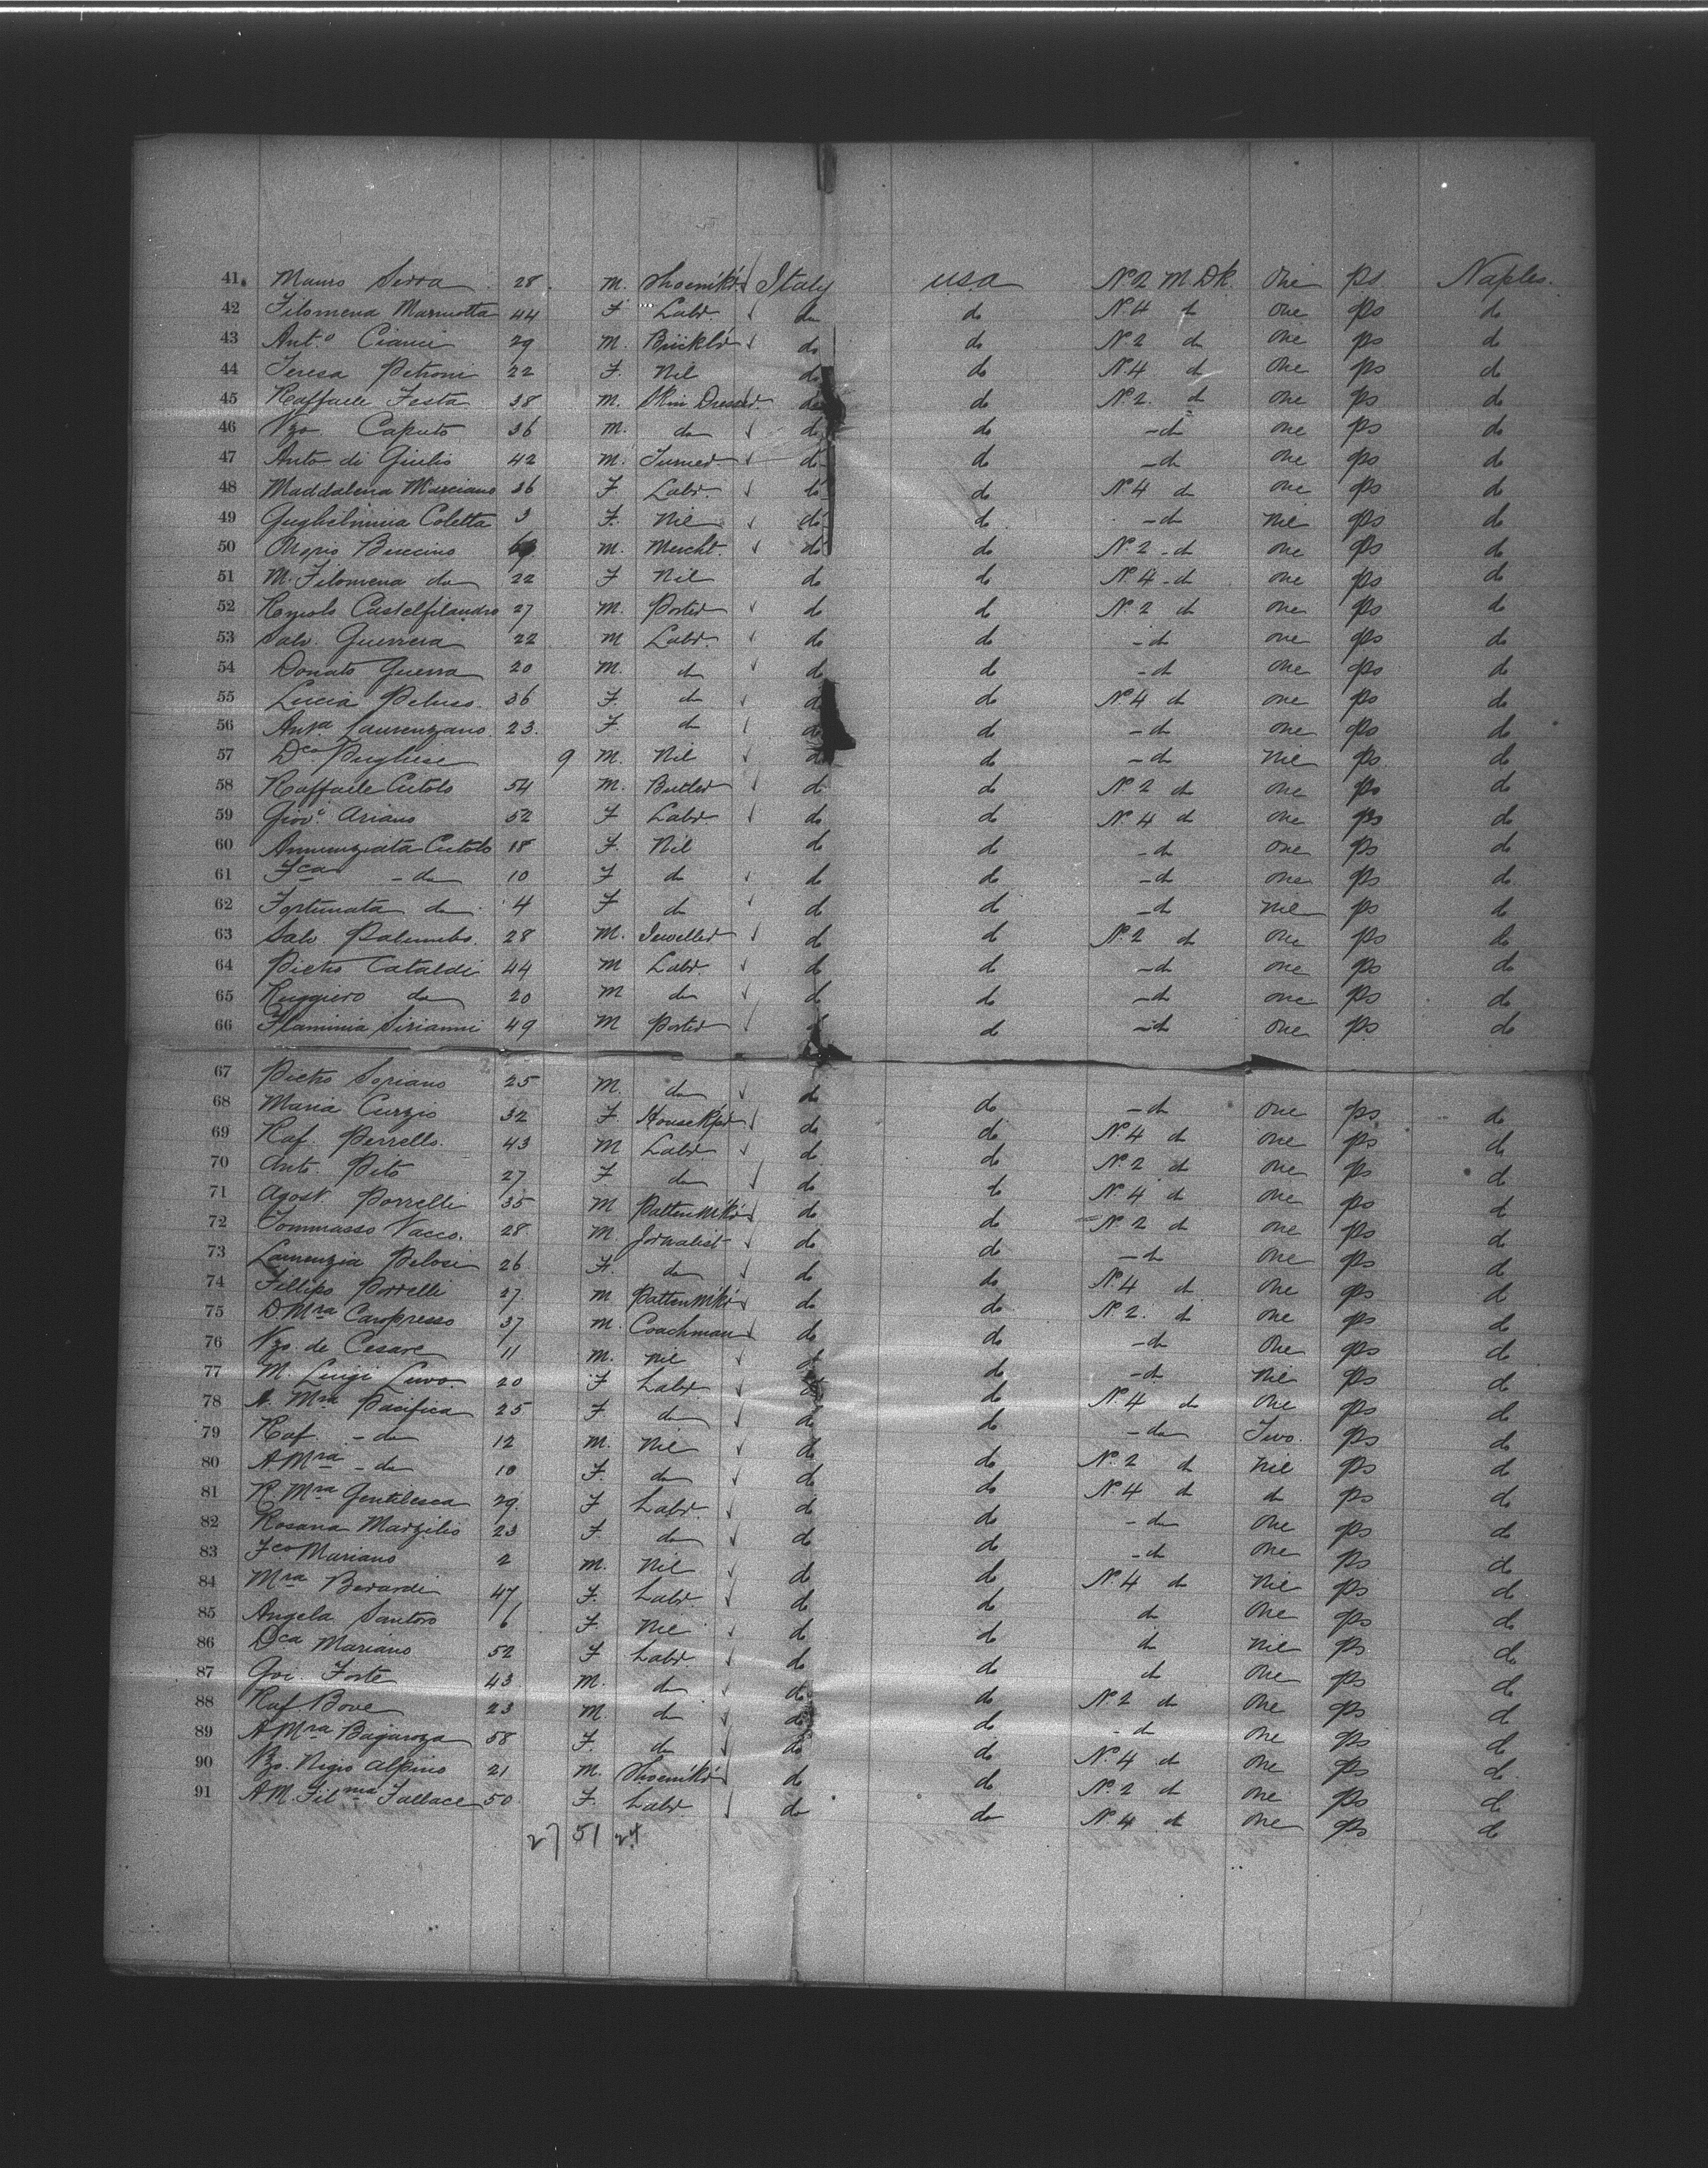 41. Mauro Serra 28 M. Shoemkr Italy USA No 2 M Dk. One ps Naples.
42 Filomena Marmotta 44 F Labr. do do No 4 do one ps do
43 Anto Cianci 29 M. Bricklr do do No 2 do one ps do
44 Teresa Petroni 22 F. Nil do do No 4 do One ps do
45 Raffaele Festa 38 M. Skin Dresser do do No 2. do one ps do
46 Vzo Caputo 36 M. do do do - do one ps do
47 Anto di Giulio 42 M. Turner do do - do one ps do
48 Maddalena Marciano 36 F Labr. do do No 4 do one ps do
49 Guglielmina Coletta 3 F. Nil do do - do Nil ps do
50 Buccino M. Mercht. do do No 2 - do one ps do
51 M. Filomena do 22 F Nil do do No 4 - do one ps do
52 Castelfilandro 27 M. Porter do do No 2 do one ps do
53 Salv. Guerrera 22 M Labr. do do - do one ps do
54 Donato Guerra 20 M. do do do - do one ps do
55 Lucia Peluso. 36 F. do do do No 4 do one ps do
56 Anta Laurenzano 23. F. do do do - do one ps do
57 Dco Pugliese 9 M. Nil do do - do Nil ps do
58 Raffaele Cutolo 54 M. Butler do do No 2 do one ps do
59 Giova Ariano 52 F Labr. do do No 4 do one ps do
60 Annunziata Cutolo 18 F. Nil do do - do one ps do
61 Fca - do 10 F do do do - do one ps do
62 Fortunata do 4 F do do do - do Nil ps do
63 Salv. Palumbo. 28 M. Jeweller do do No 2 do one ps do
64 Pietro Cataldi 44 M Labr. do do - do one ps do
65 Ruggiero do 20 M do do do - do one ps do
66 Flaminia Sirianni 49 M Porter do do - do one ps do
67 Pietro Soriano 25 M. do do do - do one ps do
68 Maria Curzio 32 F. HouseKpr do do No 4 do one ps do
69 Raf. Perrello. 43 M Labr do do No 2 do one ps do
70 Anto. Pito 27 F do do do No 4 do one ps do
71 Agost. Porrelli 35 M PatternMkr do do No 2 do one ps do
72 Tommasso Vacco. 28 M. Jornalist do do - do One ps do
73 Laurenzia Pelosi 26 F. do do do No 4 do One ps do
74 Fillipo Porrelli 27 M PatternMkr do do No 2. do one ps do
75 D Mra Campresso 37 M. Coachman do do - do One ps do
76 Vzo. de Cesare 11 M. Nil do do - do Nil ps do
77 M. Luigi 20 F Labr. do do No 4 do One ps do
78 Mra Pacifica 25 F do do do - do Two. ps do
79 Raf. - do 12 M. Nil do do No 2 do Nil ps do
80 A Mra - do 10 F. do do do No 4 do do ps do
81 R. Mra Gentilesca 29. F Labr. do do - do One ps do
82 Rosana Marzilio 23 F. do do do - do One ps do
83 Fco Mariano 2 M. Nil do do No 4 do Nil ps do
84 Mra Berardi 47 F. Labr. do do do One ps do
85 Angela Santoro 6 F. Nil do do do Nil ps do
86 Dca Mariano 52 F Labr. do do do One ps do
87 Gio Forte 43 M. do do do No 2 do One ps do
88 Raf. Bove 23 M. do do do - do One ps do
89 A Mra 58 F. do do do No 4 do One ps do
90 Vzo. Nigro Alpino 21 M. Shoemkr do do No 2 do one ps do
91 A M. Filma Fallace 50 F. Labr. do do No 4 do one ps do
27 51 24